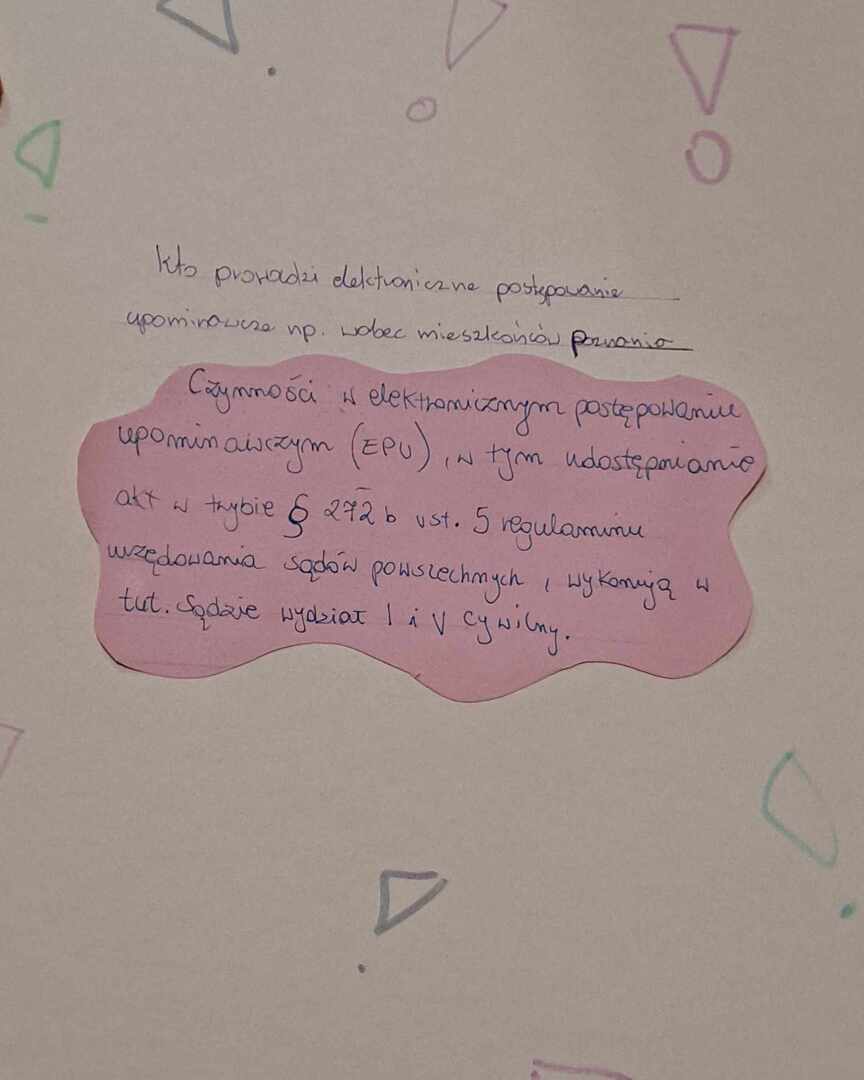 Kto prowadzi elektroniczne postępowanie
upominawcze np. wobec mieszkańców Poznania
Czynności w elektronicznym postępowaniu
upominawczym (EPU), w tym udostępnianie
akt w trybie § 272 b ust. 5 regulaminu
urzędowania sądów powszechnych, wykonują w
tut. Sądzie wydział I i V cywilny.